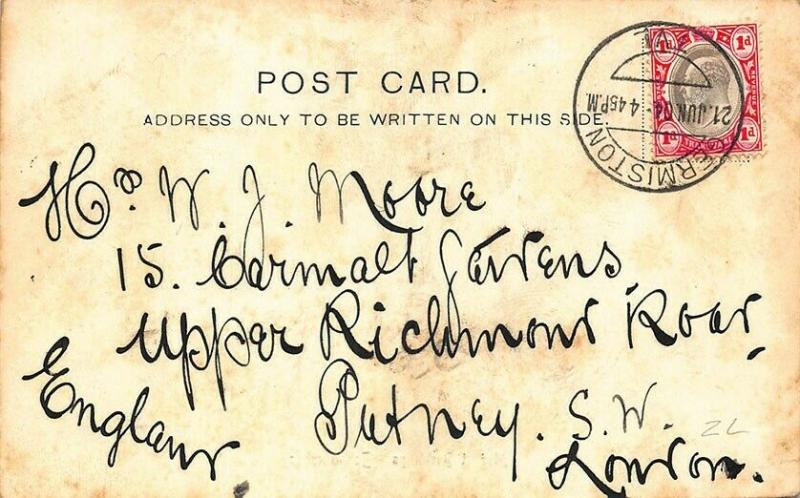 POST CARD.
ADDRESS ONLY TO BE WRITTEN ON THIS SIDE.
1d 1d
1d 1d
TRANSVAAL
21.JUN.04 - 4 45 P.M.
ERMISTON
Mrs. W. J. Moore
15. Carmalt Gardens
Upper Richmond Road,
Putney. S.W.
London.
England
ZL